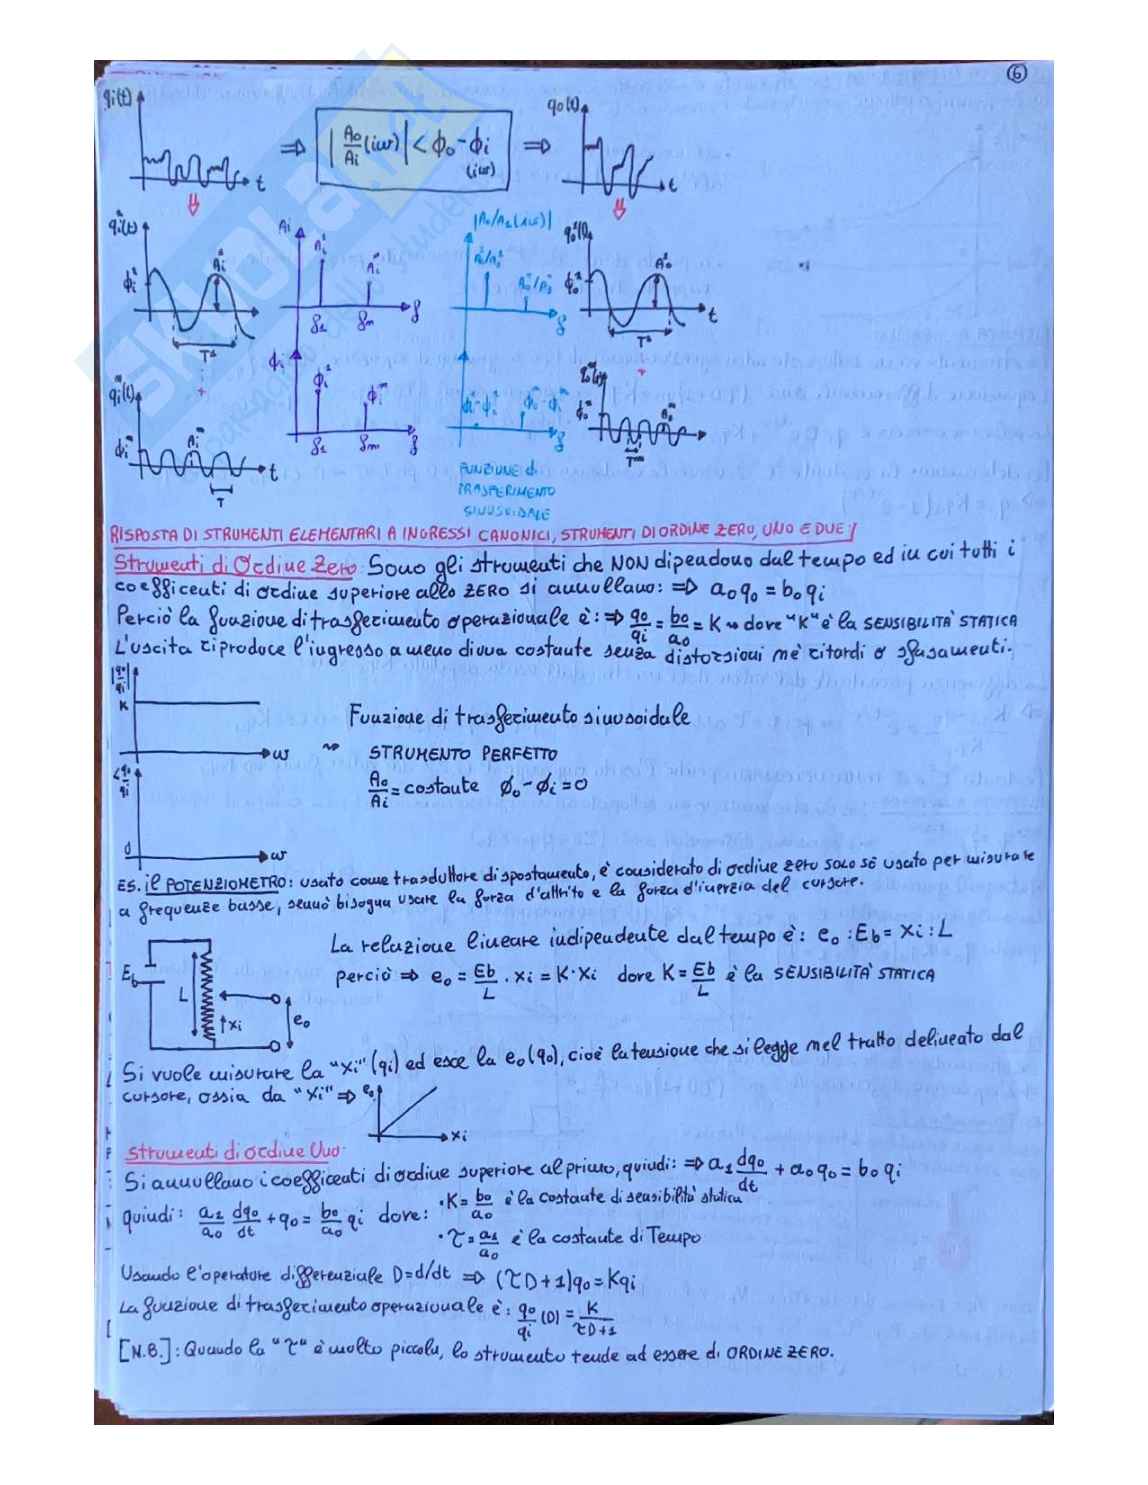 6
qi(t)
t
⇒
|Ao/Ai (iω)| < ϕo - ϕi (iω)
⇒
qo(t)
t
qi¹(t)
ϕi¹
Ai¹
T¹
Ai
Ai¹
Aiⁿ
f1
fn
f
f
|Ao/Ai(iω)|
Ao¹/Ai¹
Aoⁿ/Aiⁿ
f
qo¹(t)
ϕo¹
Ao¹
t
T¹
qiⁿ(t)
ϕiⁿ
Aiⁿ
t
T
ϕi
ϕi¹
ϕiⁿ
f1
fn
f
ϕo¹-ϕi¹
ϕoⁿ-ϕiⁿ
f
ϕoⁿ
Aoⁿ
Tⁿ
FUNZIONE di
TRASFERIMENTO
SINUSOIDALE
RISPOSTA DI STRUMENTI ELEMENTARI A INGRESSI CANONICI, STRUMENTI DI ORDINE ZERO, UNO E DUE:
Strumenti di Ordine Zero: Sono gli strumenti che NON dipendono dal tempo ed in cui tutti i
coefficenti di ordine superiore allo ZERO si annullano: ⇒ a0 q0 = b0 qi
Perciò la funzione di trasferimento operazionale è: ⇒ q0/qi = b0/a0 = K ⇝ dove "K" è la SENSIBILITÀ STATICA
L'uscita riproduce l'ingresso a meno di una costante senza distorsioni nè ritardi o sfasamenti.
|q0/qi|
K
ω
Funzione di trasferimento sinusoidale
⇝ STRUMENTO PERFETTO
Ao/Ai = costante ϕo - ϕi = 0
∠q0/qi
0
ω
ES. il POTENZIOMETRO: usato come trasduttore di spostamento, è considerato di ordine zero solo se usato per misurare
a frequenze basse, sennò bisogna usare la forza d'attrito e la forza d'inerzia del cursore.
La relazione lineare indipendente dal tempo è: eo : Eb = xi : L
perciò ⇒ eo = Eb/L · xi = K·xi dove K = Eb/L è la SENSIBILITÀ STATICA
Eb
L
↑xi
eo
Si vuole misurare la "xi" (qi) ed esce la eo (qo), cioè la tensione che si legge nel tratto delineato dal
cursore, ossia da "xi" ⇒ eo
xi
Strumenti di ordine Uno:
Si annullano i coefficenti di ordine superiore al primo, quindi: ⇒ a1 dq0/dt + a0 q0 = b0 qi
quindi: a1/a0 dq0/dt + q0 = b0/a0 qi dove: · K = b0/a0 è la costante di sensibilità statica
· τ = a1/a0 è la costante di Tempo
Usando l'operatore differenziale D = d/dt ⇒ (τD+1)q0 = Kqi
La funzione di trasferimento operazionale è: q0/qi (D) = K/τD+1
[N.B.]: Quando la "τ" è molto piccola, lo strumento tende ad essere di ORDINE ZERO.